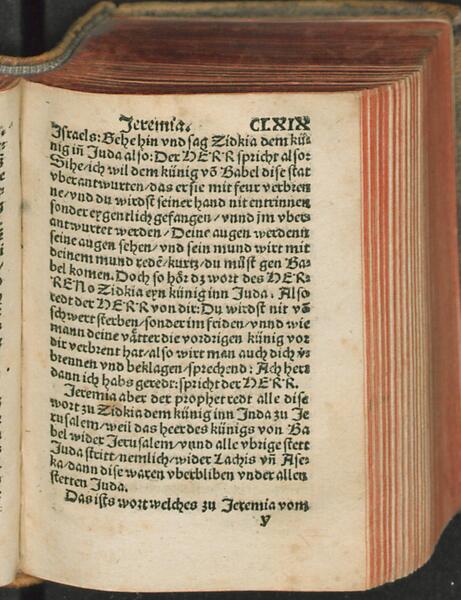 Jeremia. CLXIX
Israels: Gehe hin vnd sag Zidkia dem kü-
nig iñ Juda also: Der HERR spricht also:
Sihe/ich wil dem künig võ Babel dise stat
vberantwurten/das er sie mit feur verbren
ne/vnd du wirdst seiner hand nit entrinnen
sonder ergentlich gefangen/vnnd jm vber-
antwurtet werden/Deine augen werdenn
seine augen sehen/vnd sein mund wirt mit
deinem mund redẽ/kurtz/du můst gen Ba-
bel komen. Doch so hör dz wort des HER-
REN o Zidkia eyn künig inn Juda. Also
redt der HERR von dir: Du wirdst nit võ
schwert sterben/sonder im friden/vnnd wie
mann deine vätter die vordrigen künig vor
dir verbrent hat/also wirt man auch dich v̈-
brennen vnd beklagen/sprechend: Ach herr
dann ich habs geredt: spricht der HERR.
Jeremia aber der prophet redt alle dise
wort zu Zidkia dem künig inn Juda zu Je
rusalem/weil das heer des künigs von Ba
bel wider Jerusalem/vnnd alle vbrige stett
Juda stritt/nemlich/wider Lachis vñ Ase-
ka/dann dise waren vberbliben vnder allen
stetten Juda.
Das ists wort welches zu Jeremia vom
y